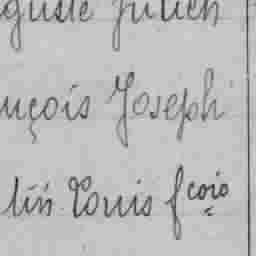 guste Julien
nçois Joseph
lin Louis fçois